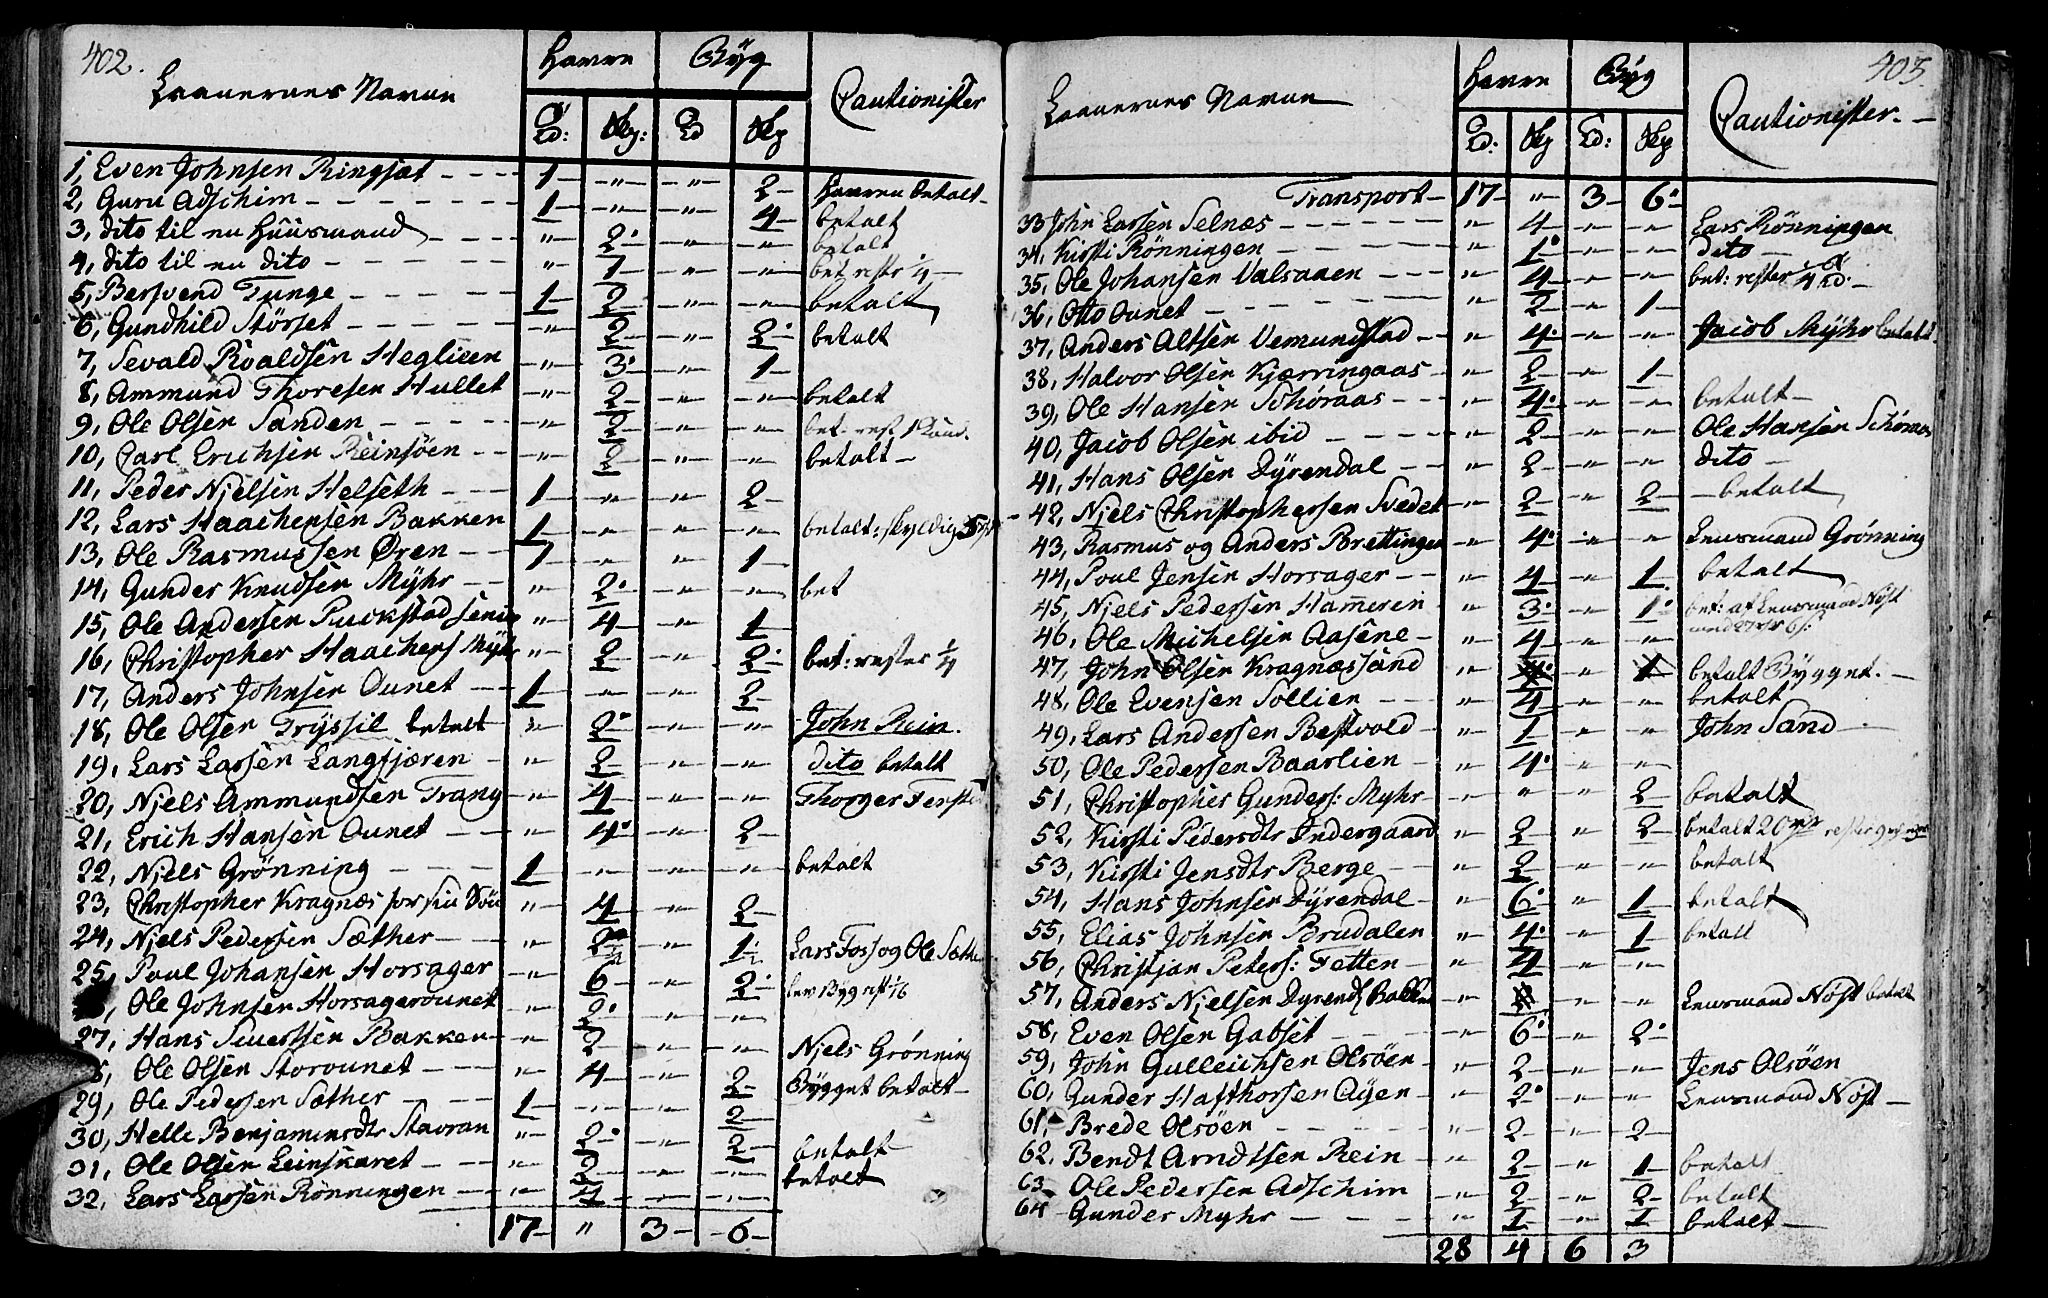 402.
Laanernes Navne | Havre | Byg | Cautionister
Td: | Skp: | Td | Skp
1, Even Johnsen Ringsæt - 1 - " - " - 2 - Havren betalt
2, Guru Adschim - 1 - " - " - 4 - betalt
3, dito til en Huusmand - " - 2 - " - " - betalt
4, dito til en dito - " - 1 - " - " - bet rest 1/4
5, Bersvend Tunge - 1 - 2 - " - " - betalt
6, Gundhild Störset - " - 2 - " - 2 - betalt
7, Sevald Roaldsen Heglieen - " - 3 - " - 1
8, Ammund Thoresen Hullet - " - 2 - " - " - betalt
9, Ole Olsen Sanden - " - 2 - " - " - bet: rest 1
10, Carl Erichsen Reinsöen - " - 2 - " - " - betalt
11, Peder Njelsen Helseth - 1 - " - " - 2
12, Lars Haachensen Bakken - 1 - " - " - " - betalt: skyldig
13, Ole Rasmussen Øren - 1 - " - " - 1
14, Gunder Knudsen Myhr - " - 2 - " - " - bet
15, Ole Andersen Ruckstad senior - " - 4 - " - 1
16, Christopher Haachens Myhr - " - 2 - " - 2 - bet: rester 1/4
17, Anders Johnsen Ounet - 1 - " - " - 2
18, Ole Olsen Tryssil betalt - " - 2 - " - " - John Rein.
19, Lars Larsen Langfjæren - " - 2 - " - " - dito betalt
20, Njels Ammundsen Trang - " - 4 - " - " - Thorger
21, Erich Hansen Ounet - " - 4 - " - 2
22, Njels Grönning - 1 - " - " - " - betalt
23, Christopher Kragnæs for sin Sön - " - 4 - " - 2
24, Njels Pedersen Sæther - " - 2 1/2 - " - 1 1/2 - Lars Foss og Ole Sæther
25, Poul Johansen Horsager - " - 6 - " - 2 - lev Byg rest 1/16
, Ole Johnsen Horsagerounet - " - 2 - " - "
27, Hans Siuerssen Bakken - " - 2 - " - " - Njels Grönning
8, Ole Olsen Storounet - " - 4 - " - 2 - Bygget betalt
29, Ole Pedersen Sæther - 1 - " - " - 2
30, Helle Benjaminsdtr Stavran - " - 2 - " - 2 - betalt
31, Ole Olsen Leinskaret - " - 2 - " - " - betalt
32, Lars Larsen Rönningen - " - 4 - " - "
17 - " - 3 - 6
403.
Laanernes Navne | Havre | Byg | Cautionister.
Td: | Skp | Td: | Skp
Transport - 17 - " - 3 - 6
33 John Larsen Selnæs - " - 4 - " - " - Lars Rönningen
34, Kirsti Rönningen - " - 1 - " - " - dito
35, Ole Johansen Valsaaen - " - 4 - " - " - bet: rester 1/4 Td.
36, Otto Ounet - " - 2 - " - 1
37, Anders Altsen Vemundstad - " - 4 - " - " - Jacob Myhr betalt
38, Halvor Olsen Kjærringaas - " - 2 - " - 1
39, Ole Hansen Schöraas - " - 4 - " - " - betalt
40, Jacob Olsen ibid - " - 2 - " - " - Ole Hansen Schöraas
41, Hans Olsen Dyrendal - " - 2 - " - " - dito
42, Njels Christophersen Svedet - " - 2 - " - 2 - betalt
43, Rasmus og Anders Brettingen - " - 4 - " - " - Lensmand Grönning
44, Poul Jensen Horsager - " - 4 - " - 1 - betalt
45, Njels Pedersen Hammeren - " - 3 - " - 1 - bet: af Lensmand Nöst
46, Ole Michelsen Aasene - " - 4 - " - "
47, John Olsen Kragnæssand - " - 4 - " - 1 - betalt Bygget.
48, Ole Evensen Sollien - " - 4 - " - " - betalt
49, Lars Andersen Bestvold - " - 1 - " - " - John Sand
50, Ole Pedersen Baarlien - " - 4 - " - "
51, Christopher Gunders: Myhr - " - " - " - 2 - betalt
52, Kirsti Pedersdtr Indergaard - " - 2 - " - 2 - betalt 20
53, Kirsti Jensdtr Berge - " - 2 - " - " - betalt
54, Hans Johnsen Dyrendal - " - 6 - " - 1 - betalt
55, Elias Johnsen Brudalen - " - 4 - " - 1 - betalt
56, Christjan Peters: Fetten - " - 4 - " - "
57, Anders Njelsen Dyrends Bakken - " - " - " - Lensmand Nöst betalt
58, Even Olsen Gabset - " - 6 - " - 2
59, John Gulleichsen Olsöen - " - 2 - " - " - Jens Olsöen
60, Gunder Hafthorsen Ayen - " - 2 - " - " - Lensmand Nöst
61, Brede Olsöen - " - 2 - " - 2
62, Bendt Arndtsen Rein - " - 2 - " - 1 - betalt
63 Ole Pedersen Adschim - " - 2 - " - 2 - betalt
64 Gunder Myhr - " - 1 - " - 1 - betalt
28 4 6 3